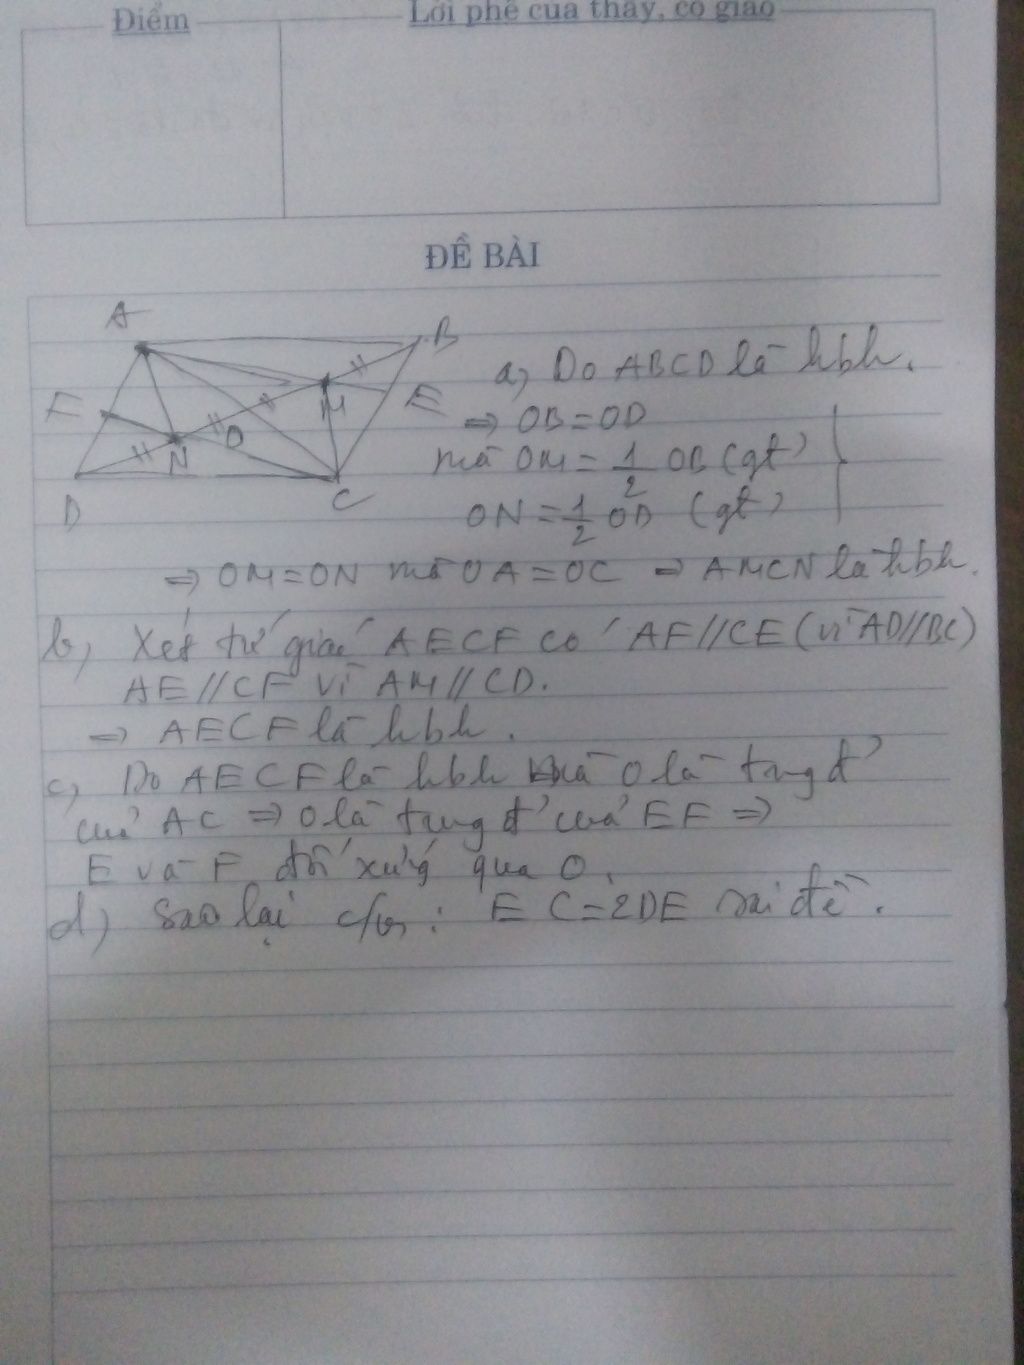 Điểm
Lời phê của thầy, cô giáo
ĐỀ BÀI
A
B
F
E
M
O
N
D
C
a, Do ABCD là hbh.
⇒ OB = OD
mà OM = 1/2 OB (gt)
ON = 1/2 OD (gt)
⇒ OM = ON mà OA = OC ⇒ AMCN là hbh.
b, Xét tứ giác AECF có AF//CE (vì AD//BC)
AE//CF vì AM//CD.
⇒ AECF là hbh.
c, Do AECF là hbh mà O là trung đ'
của AC ⇒ O là trung đ' của EF ⇒
E và F đối xứng qua O.
d) Sao lại c/m : EC = 2DE sai đề.